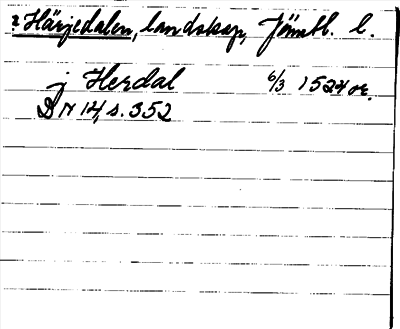 Härjedalen, landskap, Jämtl. l.
j Herdal 6/3 1524 or.
DN 14 s. 352